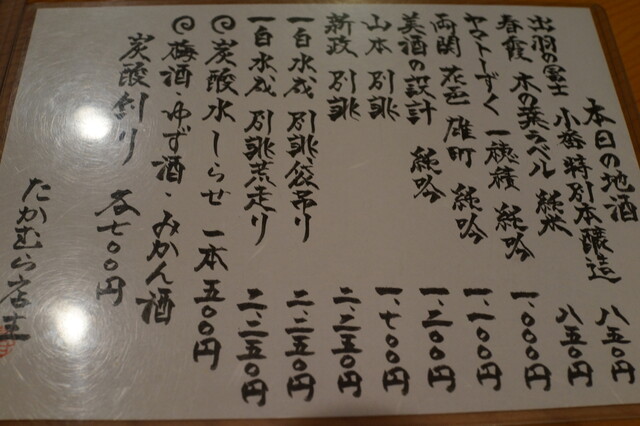 本日の地酒
出羽の冨士 小番 特別本醸造 八五〇円
春霞 木の葉ラベル 純米 八五〇円
ヤマトしずく 一穂積 純吟 一、〇〇〇円
両関 花邑 雄町 純吟 一、一〇〇円
美酒の設計 純吟 一、二〇〇円
山本 別誂 一、七〇〇円
新政 別誂 二、二五〇円
一白水成 別誂袋吊り 二、二五〇円
一白水成 別誂荒走り 二、二五〇円
◎炭酸水しらせ 一本 五〇〇円
◎梅酒・ゆず酒・みかん酒
炭酸割り 各七〇〇円
たかむら店主